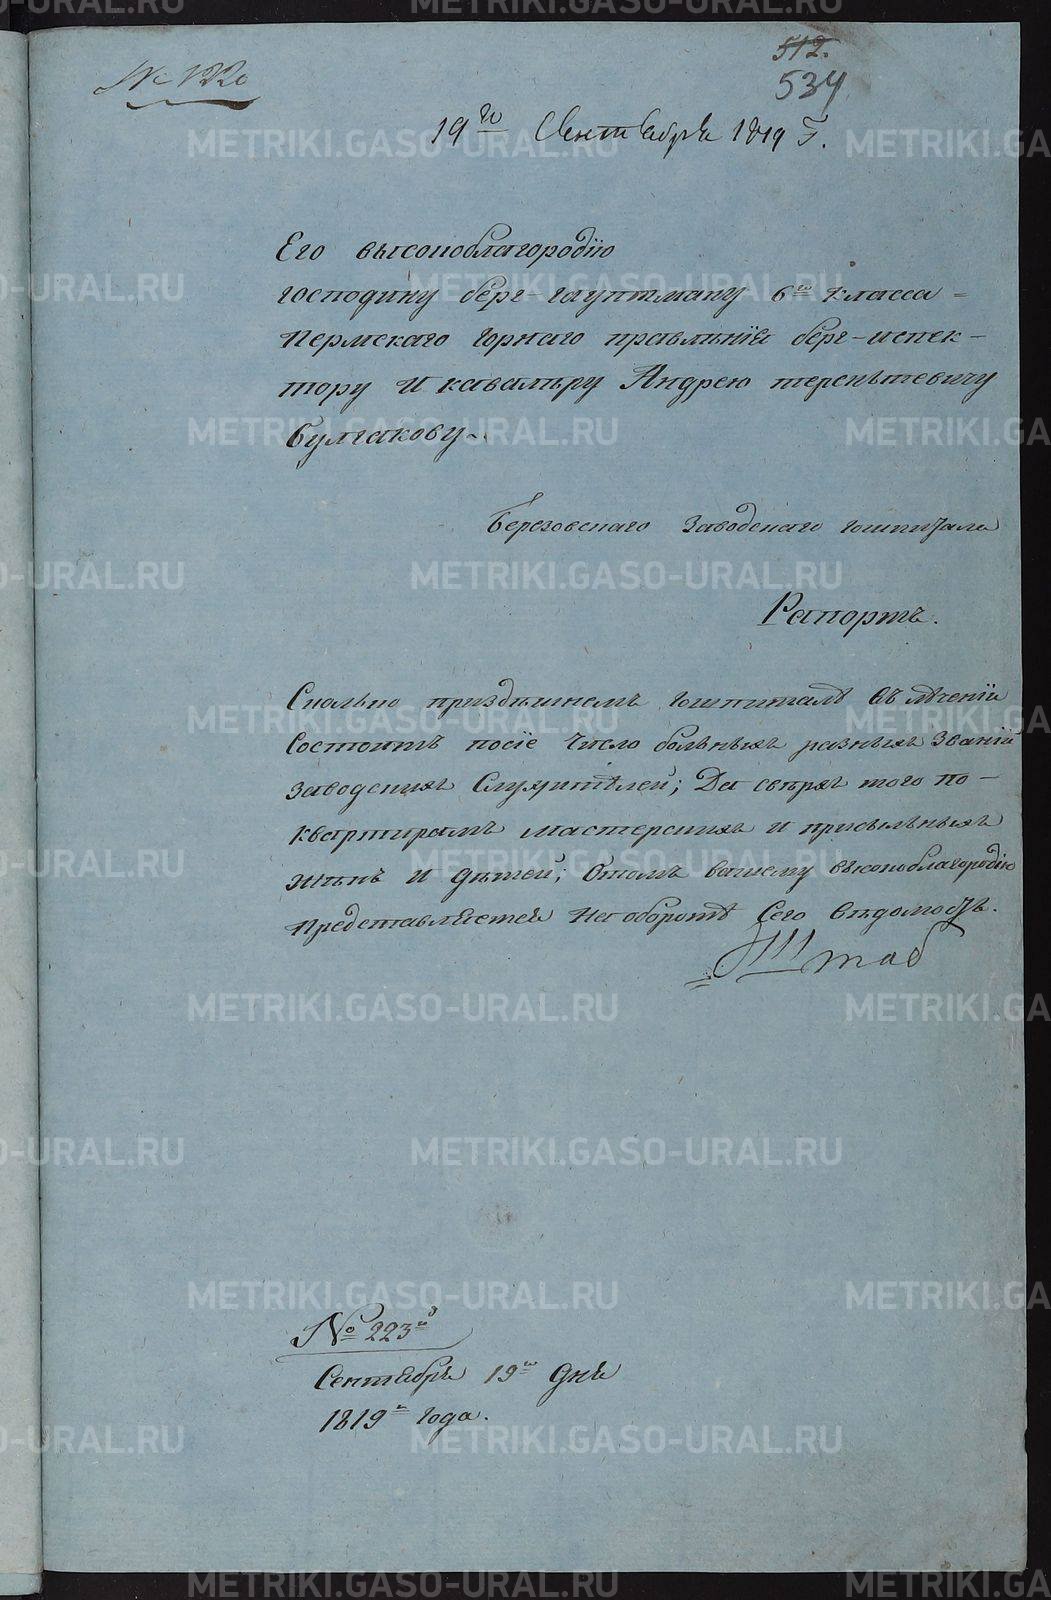 № 1220
512.
534
19го Сентебря 1819 г.
Его высокоблагородїю
господину берг-гауптману 6го класса
пермскаго горнаго правленїя берг-испек-
тору и кавалеру Андрею терентьевичу
Булгакову.
Березовскаго Заводскаго гошпиталя
Рапортъ.
Сколько приздешнемъ гошпиталѣ въ лѣченїи
Состоитъ посїе число больныхъ разныхъ Званїй
заводскихъ Служителей; Да сверхъ того по-
квартирамъ мастерскихъ и присыльныхъ
жонъ и дѣтей; отомъ вашему высокоблагородїю
представляется на оборотѣ Сего вѣдомость.
Штаб
№ 223й
Сентебря 19го дня
1819го года.
METRIKI.GASO-URAL.RU